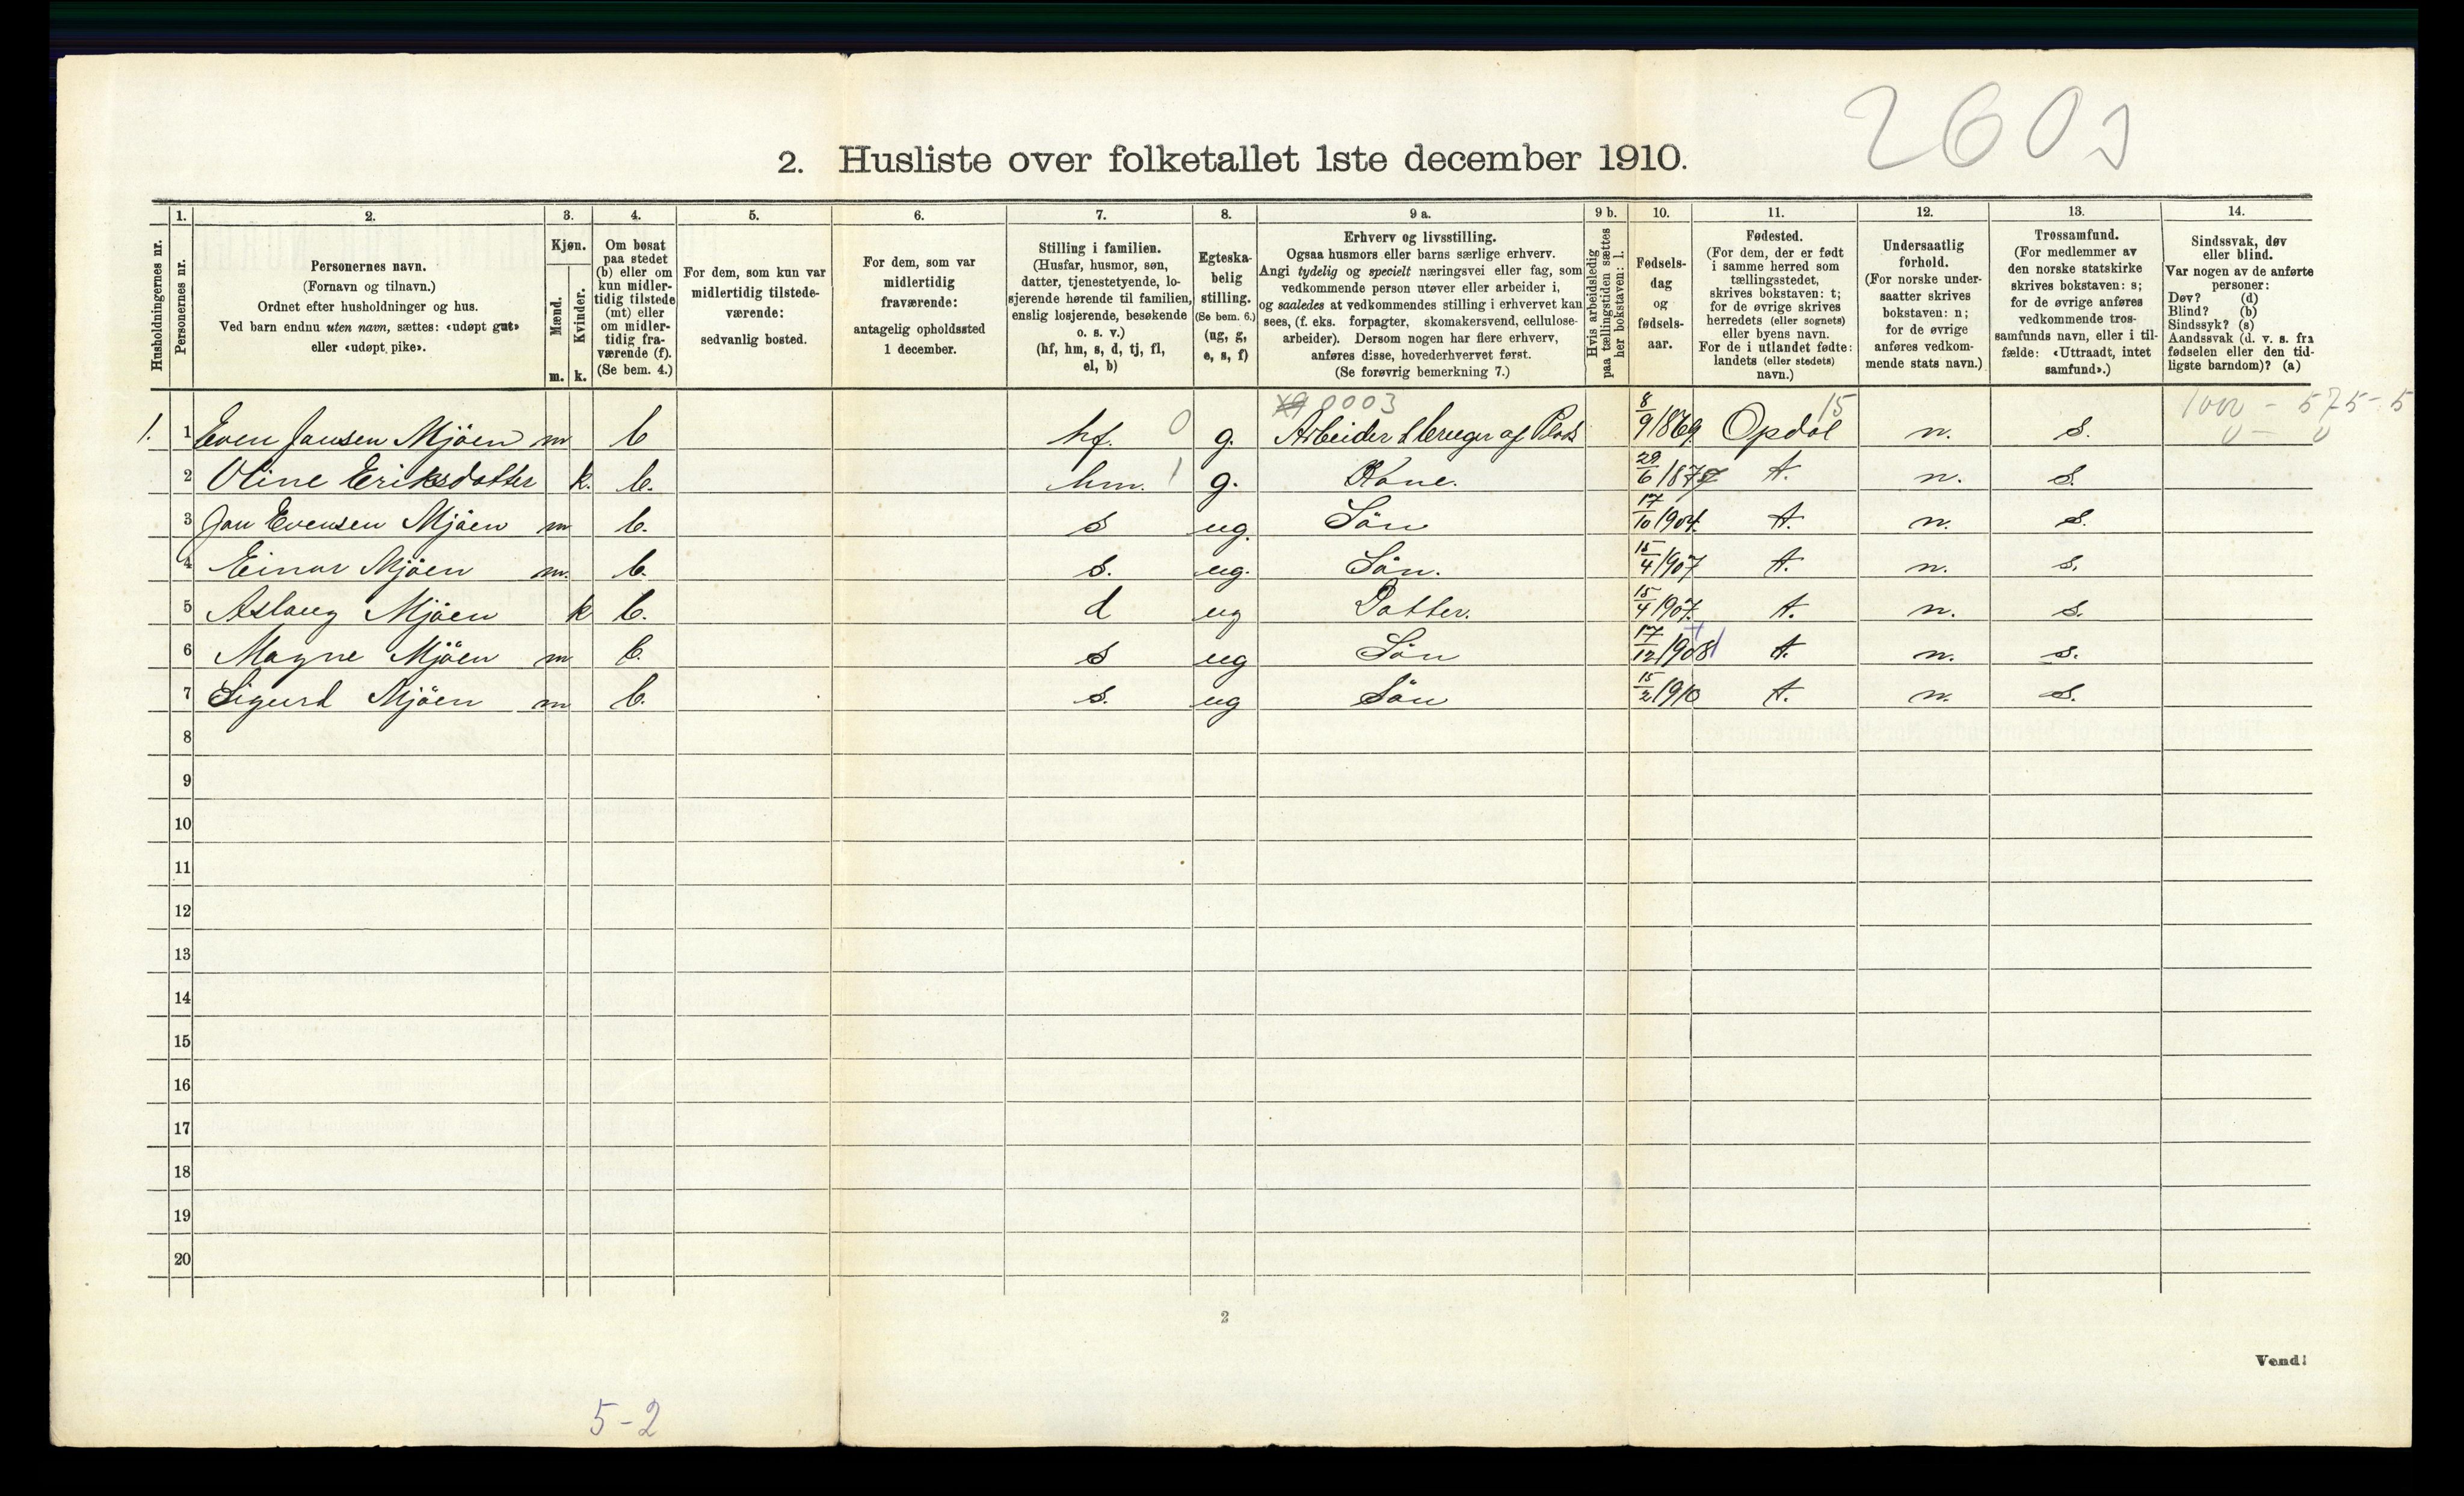 2603
2. Husliste over folketallet 1ste december 1910.
Husholdningernes nr.
1. Personernes nr.
2. Personernes navn.
(Fornavn og tilnavn.)
Ordnet efter husholdninger og hus.
Ved barn endnu uten navn, sættes: «udøpt gut»
eller «udøpt pike».
3. Kjøn.
Mænd. m.
Kvinder. k.
4. Om bosat
paa stedet
(b) eller om
kun midler-
tidig tilstede
(mt) eller
om midler-
tidig fra-
værende (f).
(Se bem. 4.)
5. For dem, som kun var
midlertidig tilstede-
værende:
sedvanlig bosted.
6. For dem, som var
midlertidig
fraværende:
antagelig opholdssted
1 december.
7. Stilling i familien.
(Husfar, husmor, søn,
datter, tjenestetyende, lo-
sjerende hørende til familien,
enslig losjerende, besøkende
o. s. v.)
(hf, hm, s, d, tj, fl,
el, b)
8. Egteska-
belig
stilling.
(Se bem. 6.)
(ug, g,
e, s, f)
9 a. Erhverv og livsstilling.
Ogsaa husmors eller barns særlige erhverv.
Angi tydelig og specielt næringsvei eller fag, som
vedkommende person utøver eller arbeider i,
og saaledes at vedkommendes stilling i erhvervet kan
sees, (f. eks. forpagter, skomakersvend, cellulose-
arbeider). Dersom nogen har flere erhverv,
anføres disse, hovederhvervet først.
(Se forøvrig bemerkning 7.)
9 b. Hvis arbeidsledig
paa tællingstiden sættes
her bokstaven: l.
10. Fødsels-
dag
og
fødsels-
aar.
11. Fødested.
(For dem, der er født
i samme herred som
tællingsstedet,
skrives bokstaven: t;
for de øvrige skrives
herredets (eller sognets)
eller byens navn.
For de i utlandet fødte:
landets (eller stedets)
navn.)
12. Undersaatlig
forhold.
(For norske under-
saatter skrives
bokstaven: n;
for de øvrige
anføres vedkom-
mende stats navn.)
13. Trossamfund.
(For medlemmer av
den norske statskirke
skrives bokstaven: s;
for de øvrige anføres
vedkommende tros-
samfunds navn, eller i til-
fælde: «Uttraadt, intet
samfund».)
14. Sindssvak, døv
eller blind.
Var nogen av de anførte
personer:
Døv? (d)
Blind? (b)
Sindssyk? (s)
Aandssvak (d. v. s. fra
fødselen eller den tid-
ligste barndom)? (a)
0003 15 1000 - 575-5
1. 1 Even Jansen Mjöen m b hf. 0 g. Arbeider & bruger af Plads 8/9 1869 Opdal n. s. 0 - 0
2 Oline Eriksdatter k. b. hm. 1 g. Kone. 29/6 1877 t. n. s.
3 Jon Evensen Mjöen m b. s ug. Sön 17/10 1904. t. n. s.
4 Einar Mjöen m. b. s. ug. Sön. 15/4 1907 t. n. s.
5 Aslaug Mjöen k b. d ug Datter. 15/4 1907. t. n. s.
6 Magne Mjöen m b. s ug Sön 17/12 1908 t. n. s.
7 Sigurd Mjöen m b. s. ug Sön 15/2 1910 t. n. s.
8
9
10
11
12
13
14
15
16
17
18
19
20
2
Vend!
5-2